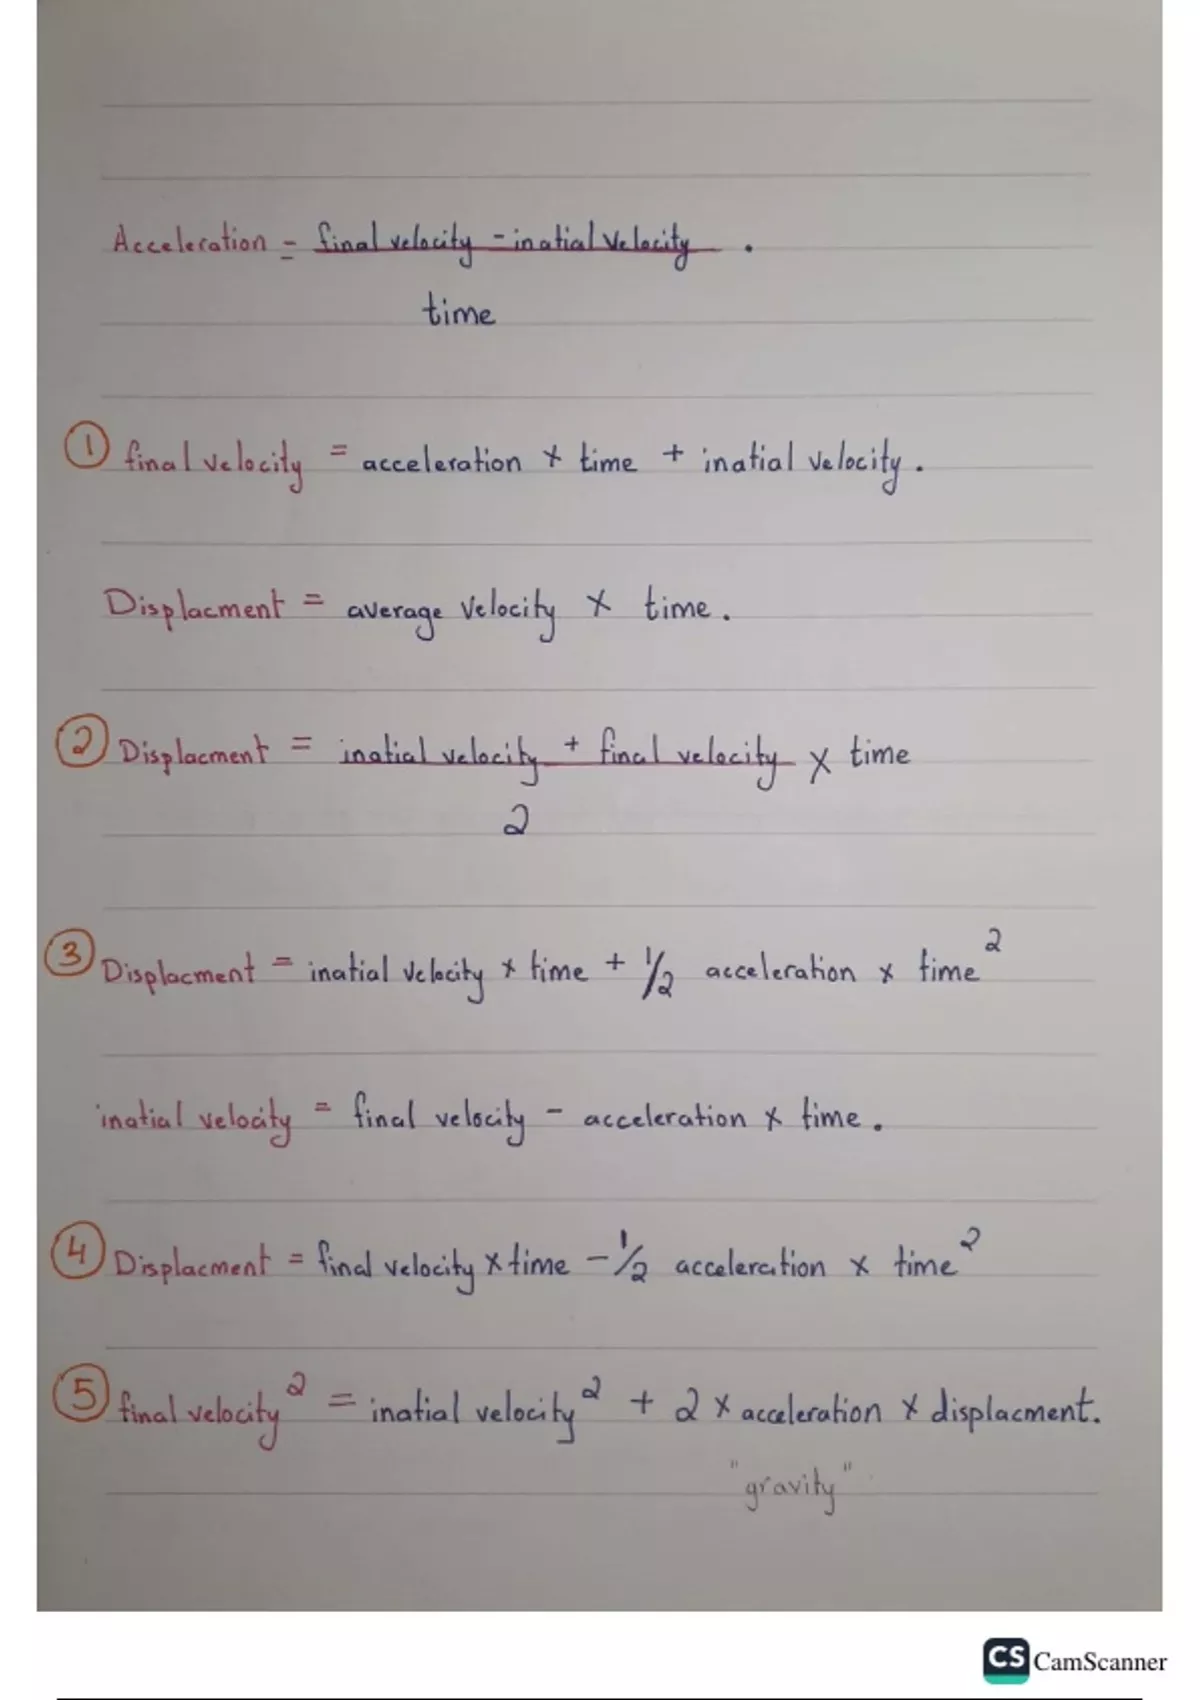 Acceleration = final velocity - inatial velocity .
time
① final velocity = acceleration × time + inatial velocity .
Displacment = average velocity × time .
② Displacment = inatial velocity + final velocity × time
2
③ Displacment = inatial velocity × time + 1/2 acceleration × time²
inatial velocity = final velocity - acceleration × time .
④ Displacment = final velocity × time - 1/2 acceleration × time²
⑤ final velocity² = inatial velocity² + 2 × acceleration × displacment.
"gravity"
CS CamScanner